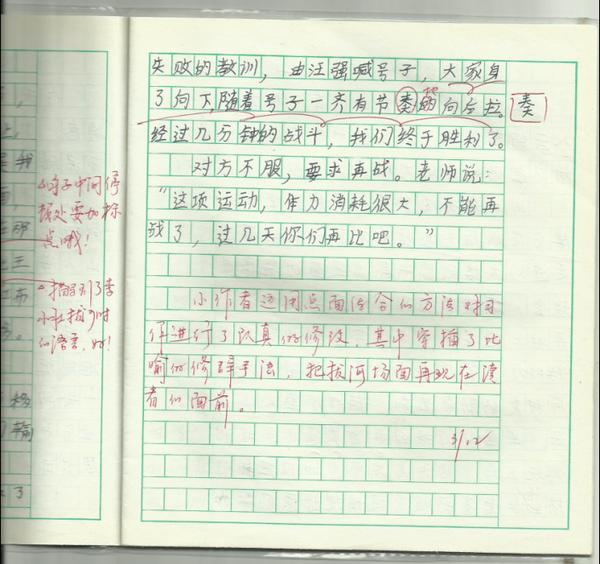 失败的教训，由汪强喊号子，大家身
子向下，随着号子一齐有节奏的向后拉。
地
奏
经过几分钟的战斗，我们终于胜利了。
对方不服，要求再战。老师说：
“这项运动，体力消耗很大，不能再
战了，过几天你们再比吧。”
小作者运用点面结合的方法对习
作进行了认真的修改，其中穿插了比
喻的修辞手法，把拔河场面再现在读
者的面前。
句子中间停
顿处要加标
点哦！
描写了李
小冰拔河时
的语言，好！